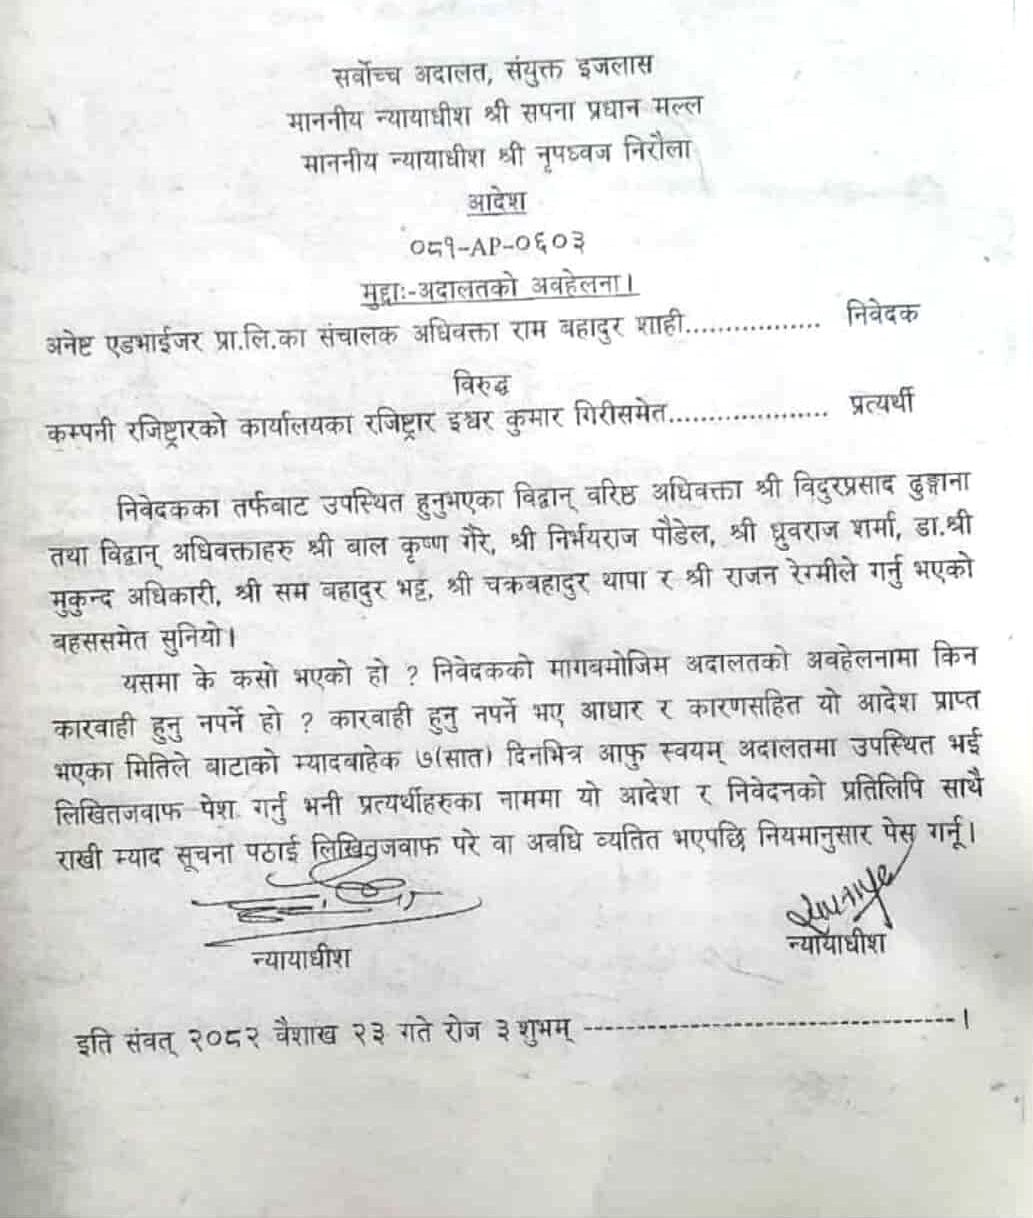 सर्वोच्च अदालत, संयुक्त इजलास
माननीय न्यायाधीश श्री सपना प्रधान मल्ल
माननीय न्यायाधीश श्री नृपध्वज निरौला
आदेश
०८१-AP-०६०३
मुद्दाः-अदालतको अवहेलना।
अनेष्ट एडभाईजर प्रा.लि.का संचालक अधिवक्ता राम बहादुर शाही................. निवेदक
विरुद्ध
कम्पनी रजिष्ट्रारको कार्यालयका रजिष्ट्रार इश्वर कुमार गिरीसमेत.................... प्रत्यर्थी
निवेदकका तर्फबाट उपस्थित हुनुभएका विद्वान् वरिष्ठ अधिवक्ता श्री विदुरप्रसाद ढुङ्गाना
तथा विद्वान् अधिवक्ताहरु श्री बाल कृष्ण गैरे, श्री निर्भयराज पौडेल, श्री ध्रुवराज शर्मा, डा.श्री
मुकुन्द अधिकारी, श्री सम बहादुर भट्ट, श्री चक्रबहादुर थापा र श्री राजन रेग्मीले गर्नु भएको
बहससमेत सुनियो।
यसमा के कसो भएको हो ? निवेदकको मागबमोजिम अदालतको अवहेलनामा किन
कारवाही हुनु नपर्ने हो ? कारवाही हुनु नपर्ने भए आधार र कारणसहित यो आदेश प्राप्त
भएका मितिले बाटाको म्यादबाहेक ७(सात) दिनभित्र आफु स्वयम् अदालतमा उपस्थित भई
लिखितजवाफ पेश गर्नु भनी प्रत्यर्थीहरुका नाममा यो आदेश र निवेदनको प्रतिलिपि साथै
राखी म्याद सूचना पठाई लिखितजवाफ परे वा अवधि व्यतित भएपछि नियमानुसार पेस गर्नू।
न्यायाधीश न्यायाधीश
इति संवत् २०८२ वैशाख २३ गते रोज ३ शुभम् -----------------------------------।